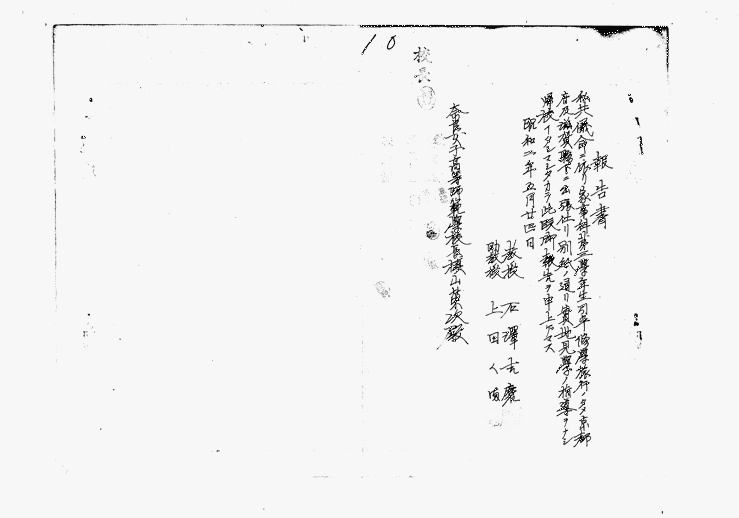 報告書
私共儀命ニ依リ家事科第三學年生引率修學旅行ノタメ京都
府及滋賀縣下ニ出張仕リ別紙ノ通リ實地見學ノ指導ヲナシ
歸校イタシマシタカラ此段御報告申上ゲマス
昭和二年五月廿四日
教授 石澤吉麿
助教授 上田
奈良女子高等師範學校長槇山榮次殿
校長
10